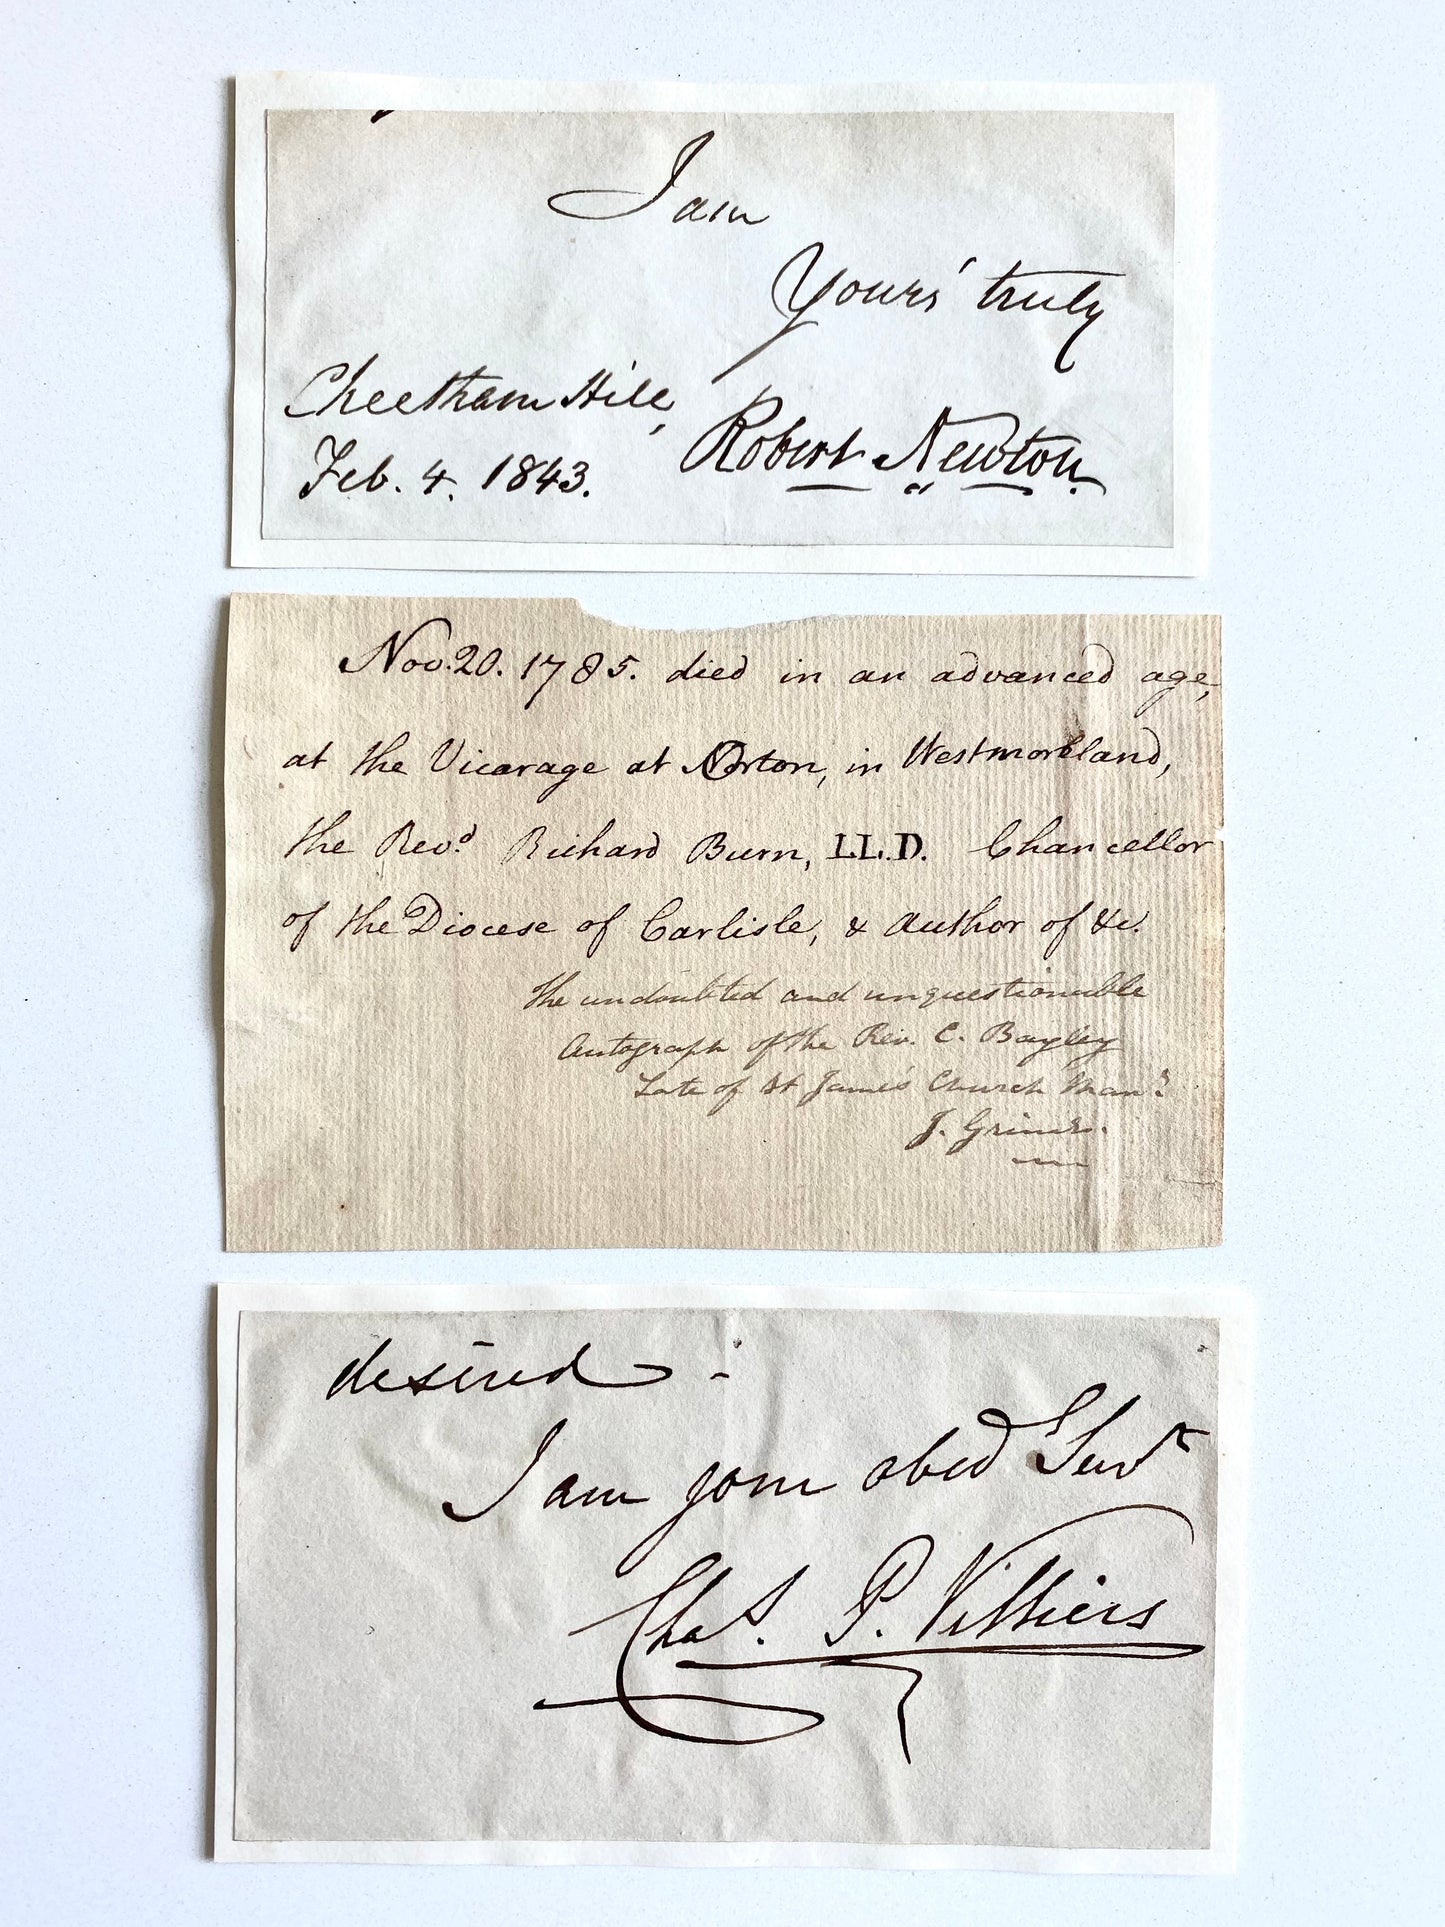 I am
Yours' truly
Cheetham Hill,
Feb. 4. 1843.
Robert Newton.
Nov. 20. 1785. died in an advanced age,
at the Vicarage at Orton, in Westmoreland,
the Revd. Richard Burn, LL.D. Chancellor
of the Diocese of Carlisle, & Author of &c.
The undoubted and unquestionable
Autograph of the Rev. C. Bayley
Late of St James's Church Manr.
J.
desired -
I am your obed Servt
Chas. P. Villiers